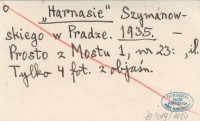 „Harnasie" Szymanow-
skiego w Pradze. 1935. -
Prosto z Mostu 1, nr 23: , il.
Tylko 4 fot. z objaśn.